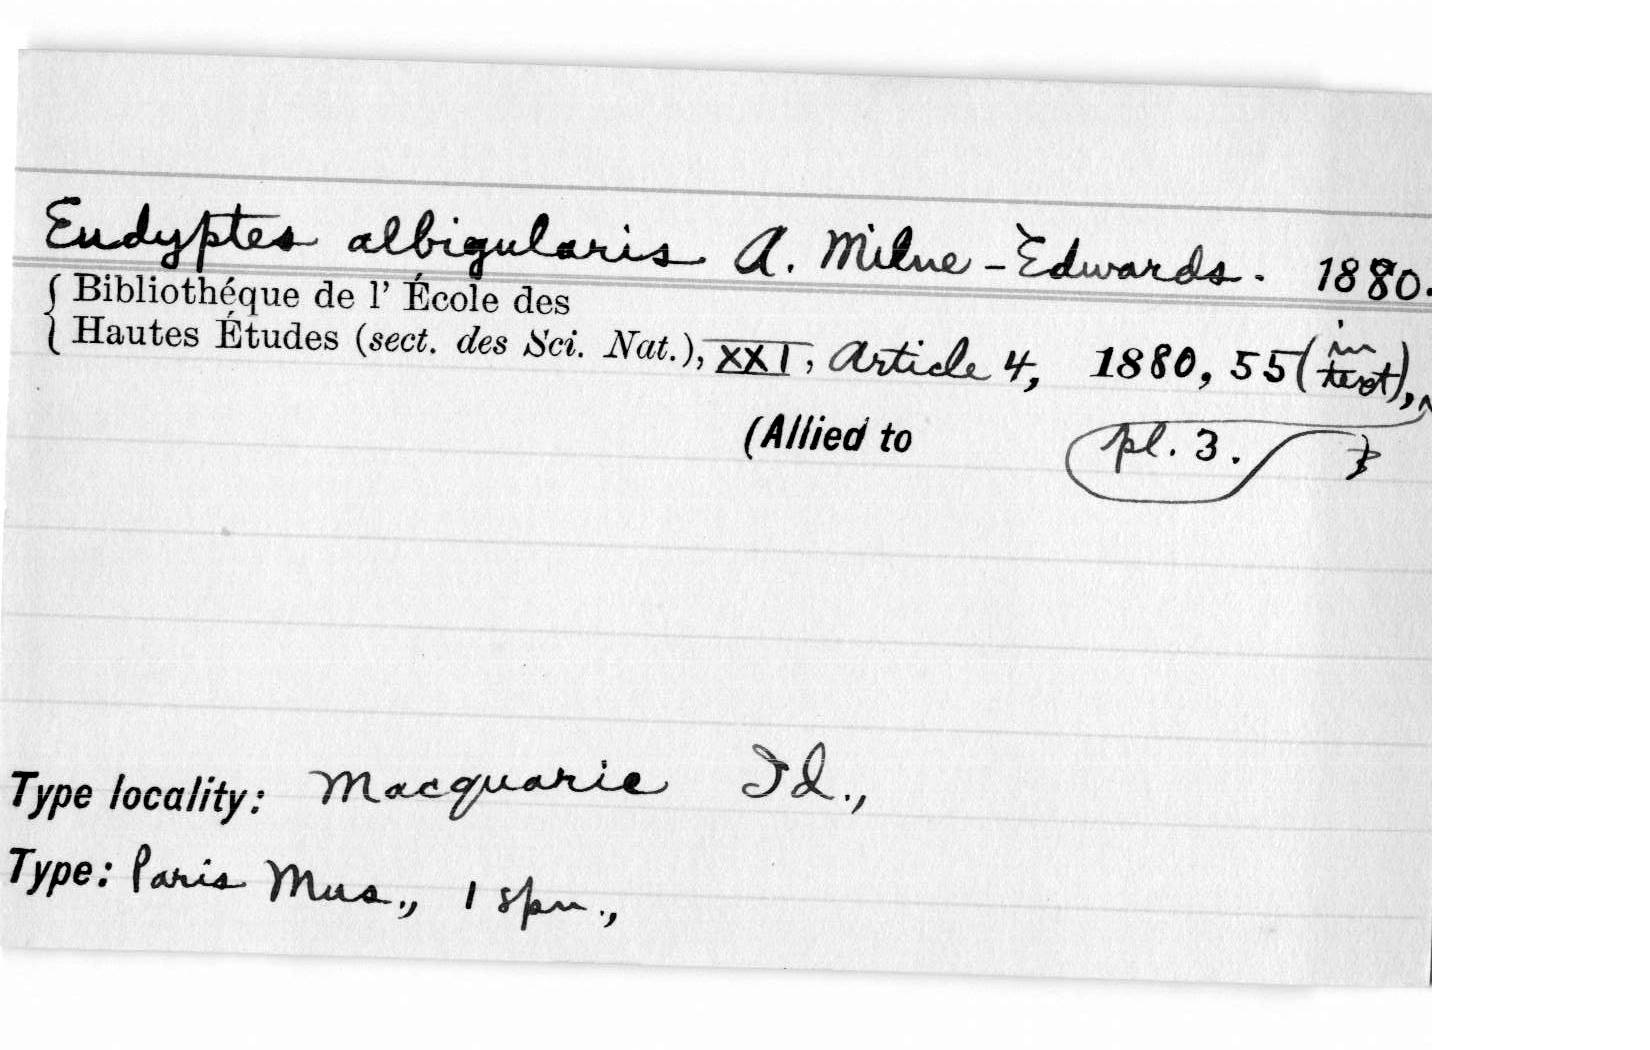 Eudyptes albigularis A. Milne-Edwards. 1880.
Bibliothéque de l' École des
Hautes Études (sect. des Sci. Nat.), XXI, Article 4, 1880, 55 (in text),
(Allied to pl. 3.
Type locality: Macquarie Id.,
Type: Paris Mus., 1 spn.,